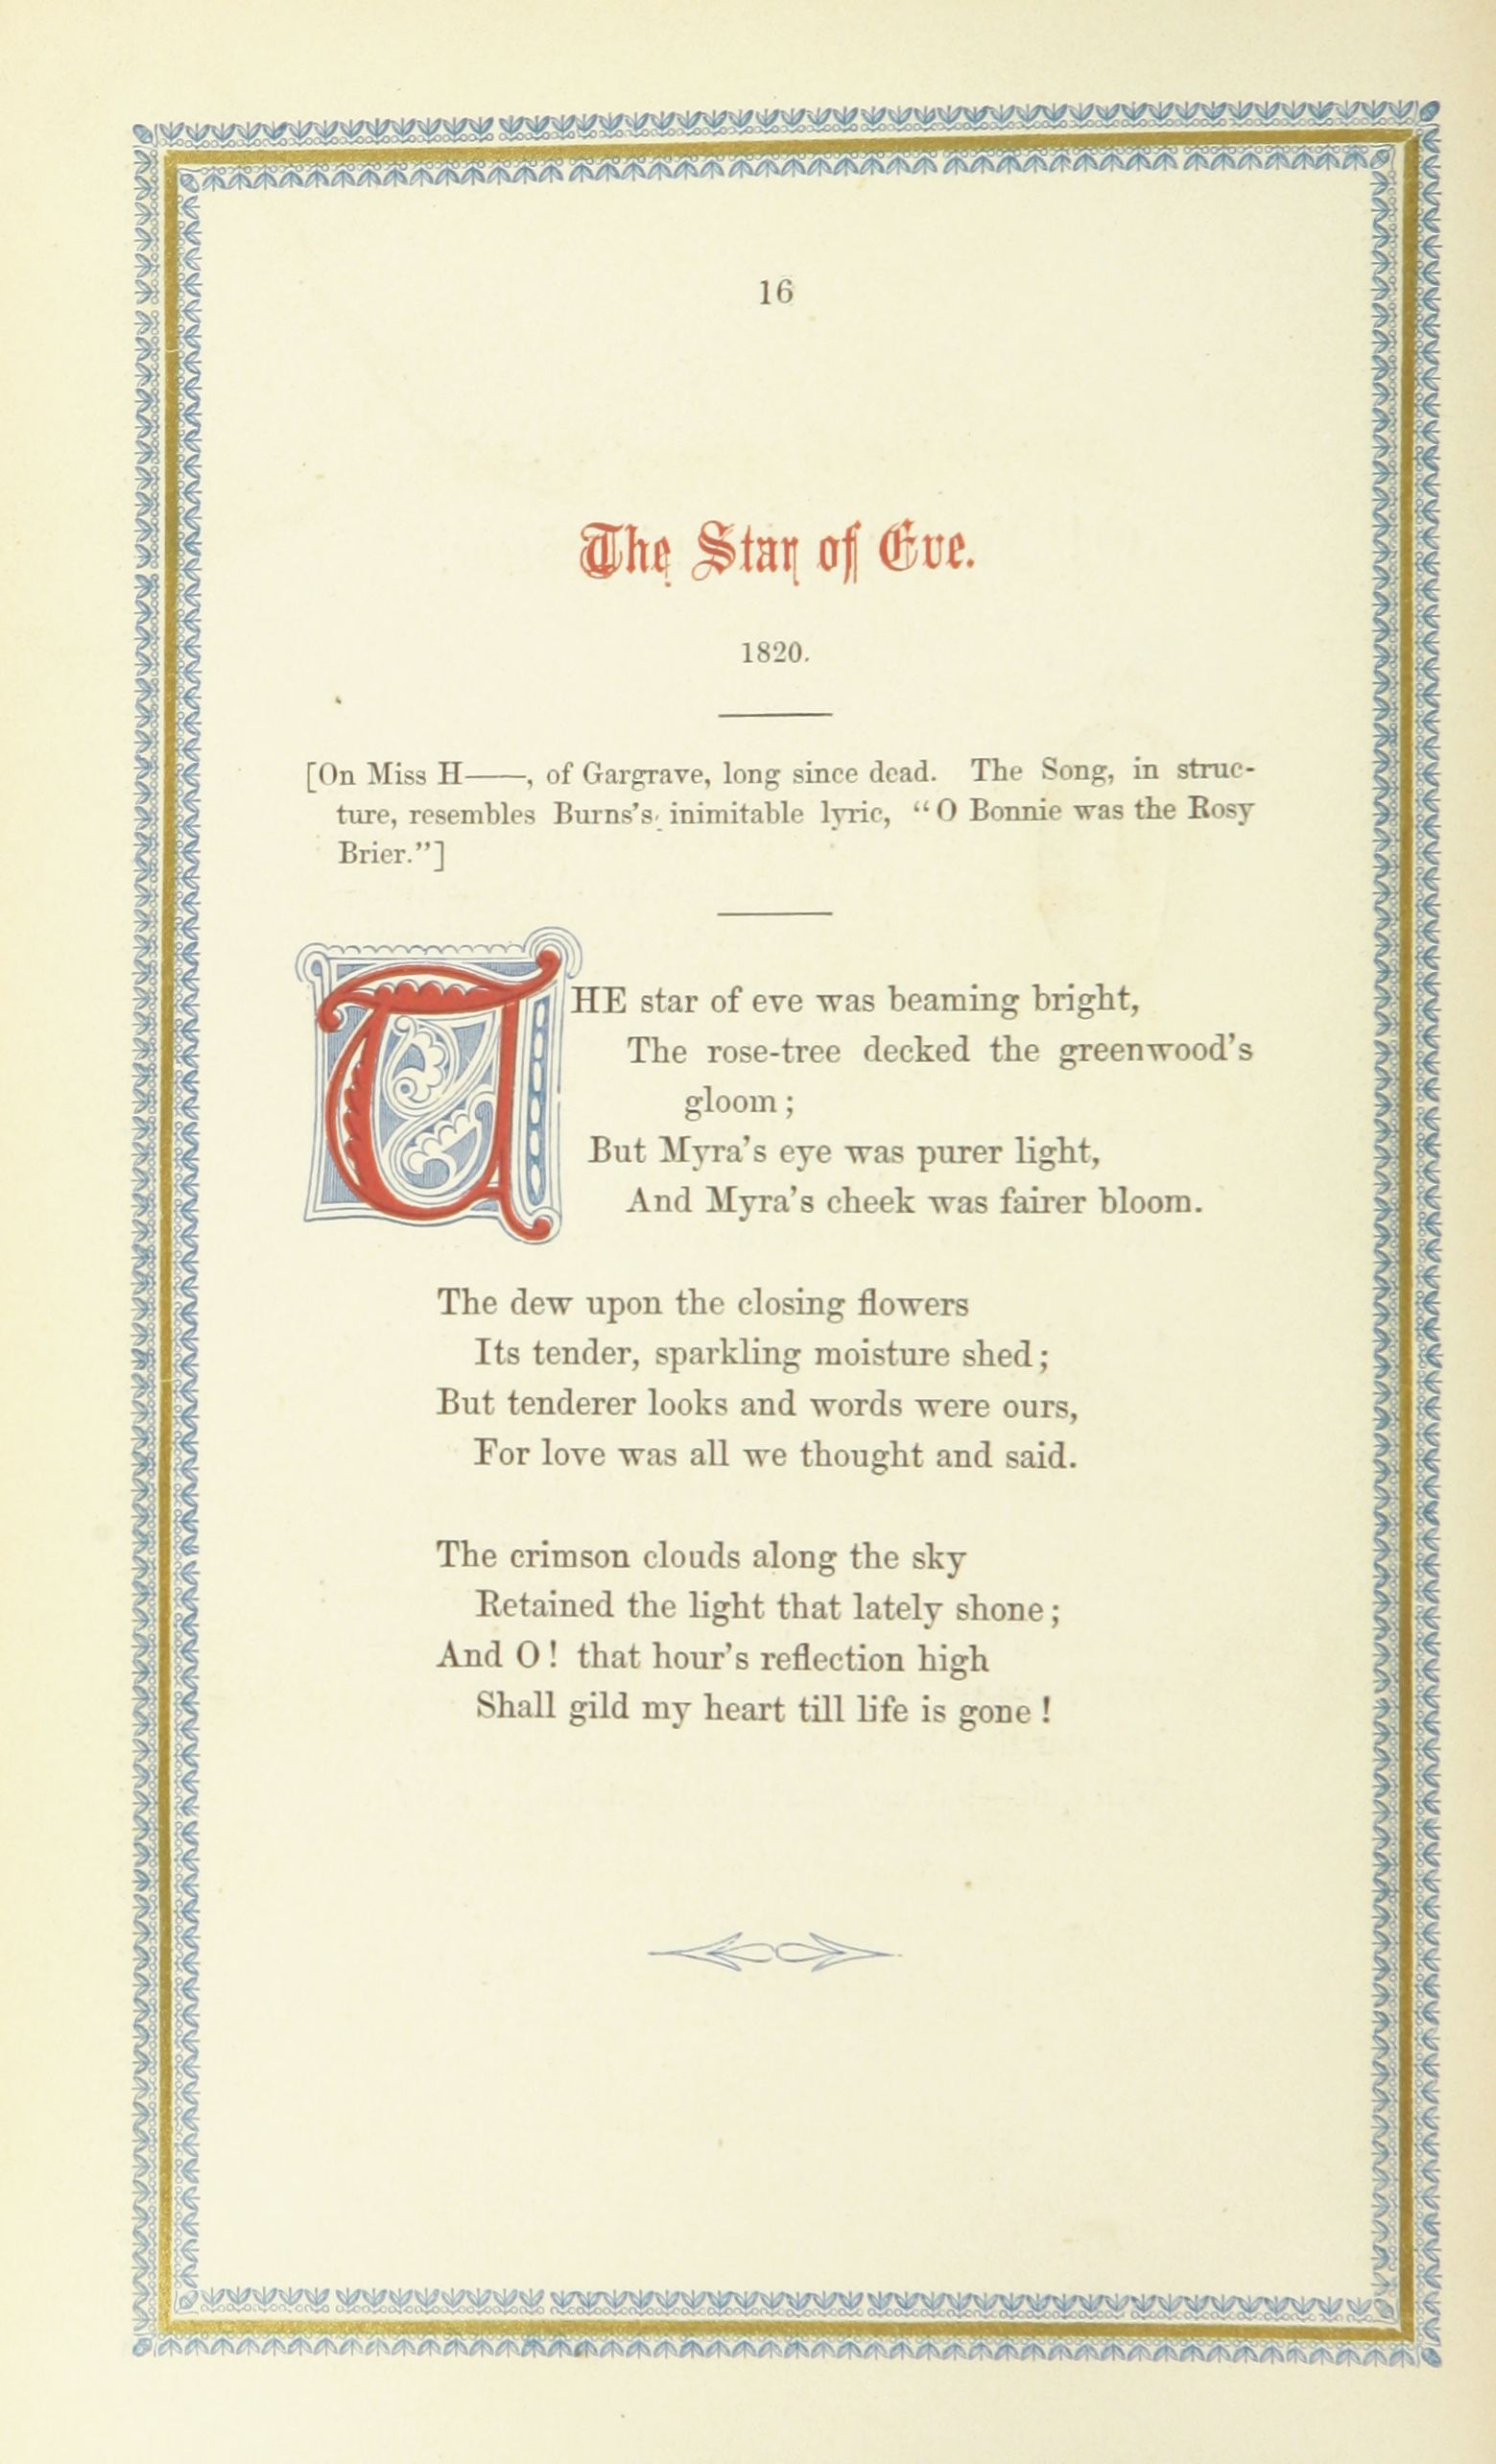 16
The Star of Eve.
1820.
[On Miss H——, of Gargrave, long since dead. The Song, in struc-
ture, resembles Burns's inimitable lyric, “O Bonnie was the Rosy
Brier.”]
THE star of eve was beaming bright,
The rose-tree decked the greenwood's
gloom;
But Myra's eye was purer light,
And Myra's cheek was fairer bloom.
The dew upon the closing flowers
Its tender, sparkling moisture shed;
But tenderer looks and words were ours,
For love was all we thought and said.
The crimson clouds along the sky
Retained the light that lately shone;
And O! that hour's reflection high
Shall gild my heart till life is gone!